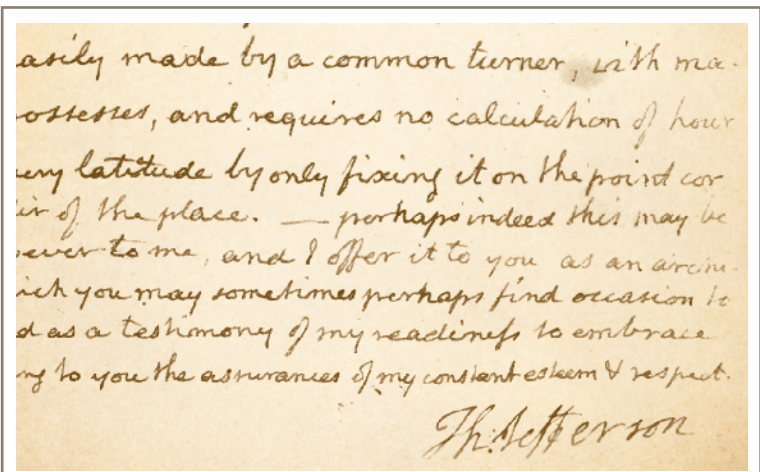 asily made by a common turner, with ma-
ossesses, and requires no calculation of hour
ery latitude by only fixing it on the point cor
dir of the place. — perhaps indeed this may be
wever to me, and I offer it to you as an archi-
ich you may sometimes perhaps find occasion to
d as a testimony of my readiness to embrace
ng to you the assurances of my constant esteem & respect.
Th: Jefferson